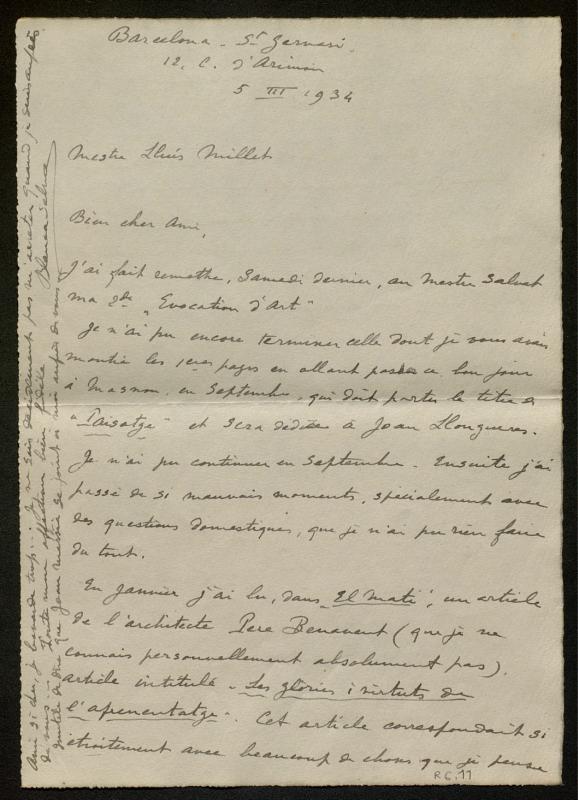 Barcelona - St Gervasi.
12, C. d'Arimon
5 III 1934
Mestre Lluís Millet
Bien cher Ami,
J'ai fait remettre, Samedi dernier, au Mestre Salvat
ma 2de "Evocation d'Art"
Je n'ai pu encore terminer celle dont je vous avais
montré les 1eres pages en allant passer ce bon jour
à Masnou, en Septembre, qui doit porter le titre de
"Paisatge" et sera dédiée à Joan Llongueres.
Je n'ai pu continuer en Septembre. Ensuite j'ai
passé de si mauvais moments, spécialement avec
des questions domestiques, que je n'ai pu rien faire
du tout.
En Janvier j'ai lu, dans "El Mati", un article
de l'architecte Pere Benavent (que je ne
connais personnellement absolument pas),
article intitulé "Les glòries i virtuts de
l'aprenentatge". Cet article correspondait si
étroitement avec beaucoup de choses que je pense
R.C. 11
Ami si cher, je bavarde trop... Je ne sais décidément pas m'arrêter quand je suis auprès
de vous... Toute mon affection bien fidèle Blanca Selva
Inutile de dire que Joan Maria se joint à moi auprès de vous